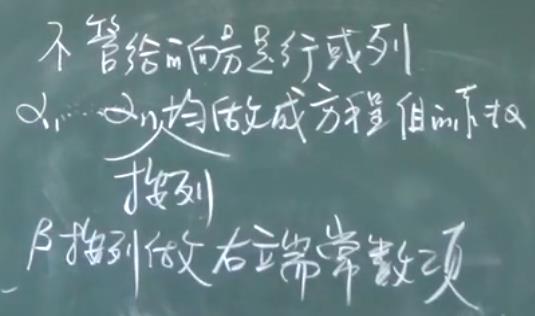 不管给的向量是行或列
α₁……αₙ均做成方程组的系数
按列
β按列做右端常数项